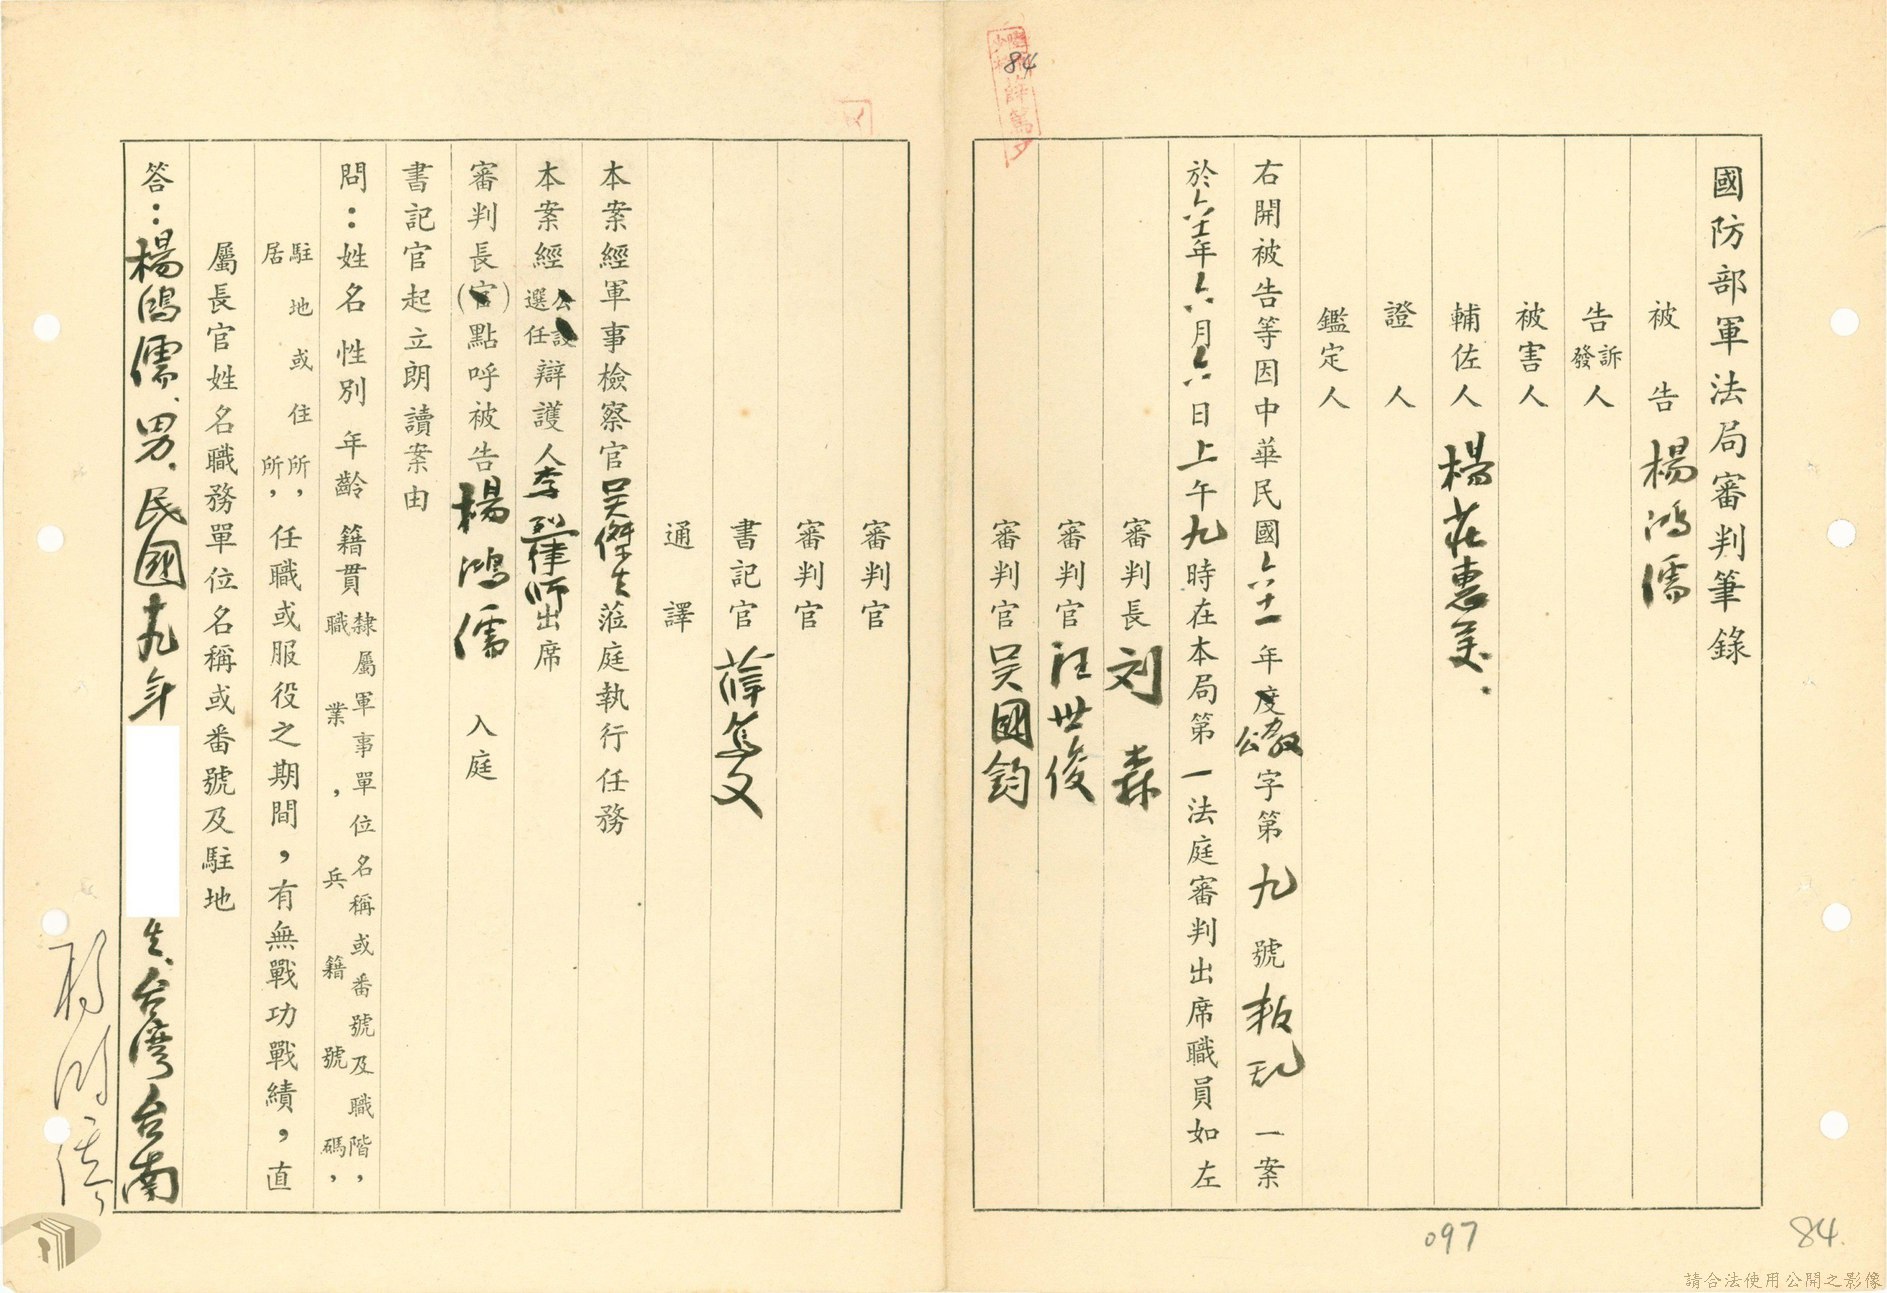 84
國防部軍法局審判筆錄
被告 楊鴻儒
告訴發人
被害人
輔佐人 楊莊惠美
證人
鑑定人
右開被告等因中華民國六十一年度 字第九號叛乱一案
於六十一年六月六日上午九時在本局第一法庭審判出席職員如左
審判長 刘森
審判官 汪世俊
審判官 吳國鈞
審判官
審判官
書記官 薛篤文
通譯
本案經軍事檢察官吳傑生蒞庭執行任務
本案經公設選任辯護人李 律師出席
審判長(官)點呼被告 楊鴻儒 入庭
書記官起立朗讀案由
問：姓名 性別 年齡 籍貫 隸屬軍事單位名稱或番號及職階，職業，兵籍號碼，
駐地或住所，居所，任職或服役之期間，有無戰功戰績，直
屬長官姓名職務單位名稱或番號及駐地
答：楊鴻儒、男、民國十九年 生、台灣台南
楊鴻儒
097
84
請合法使用公開之影像